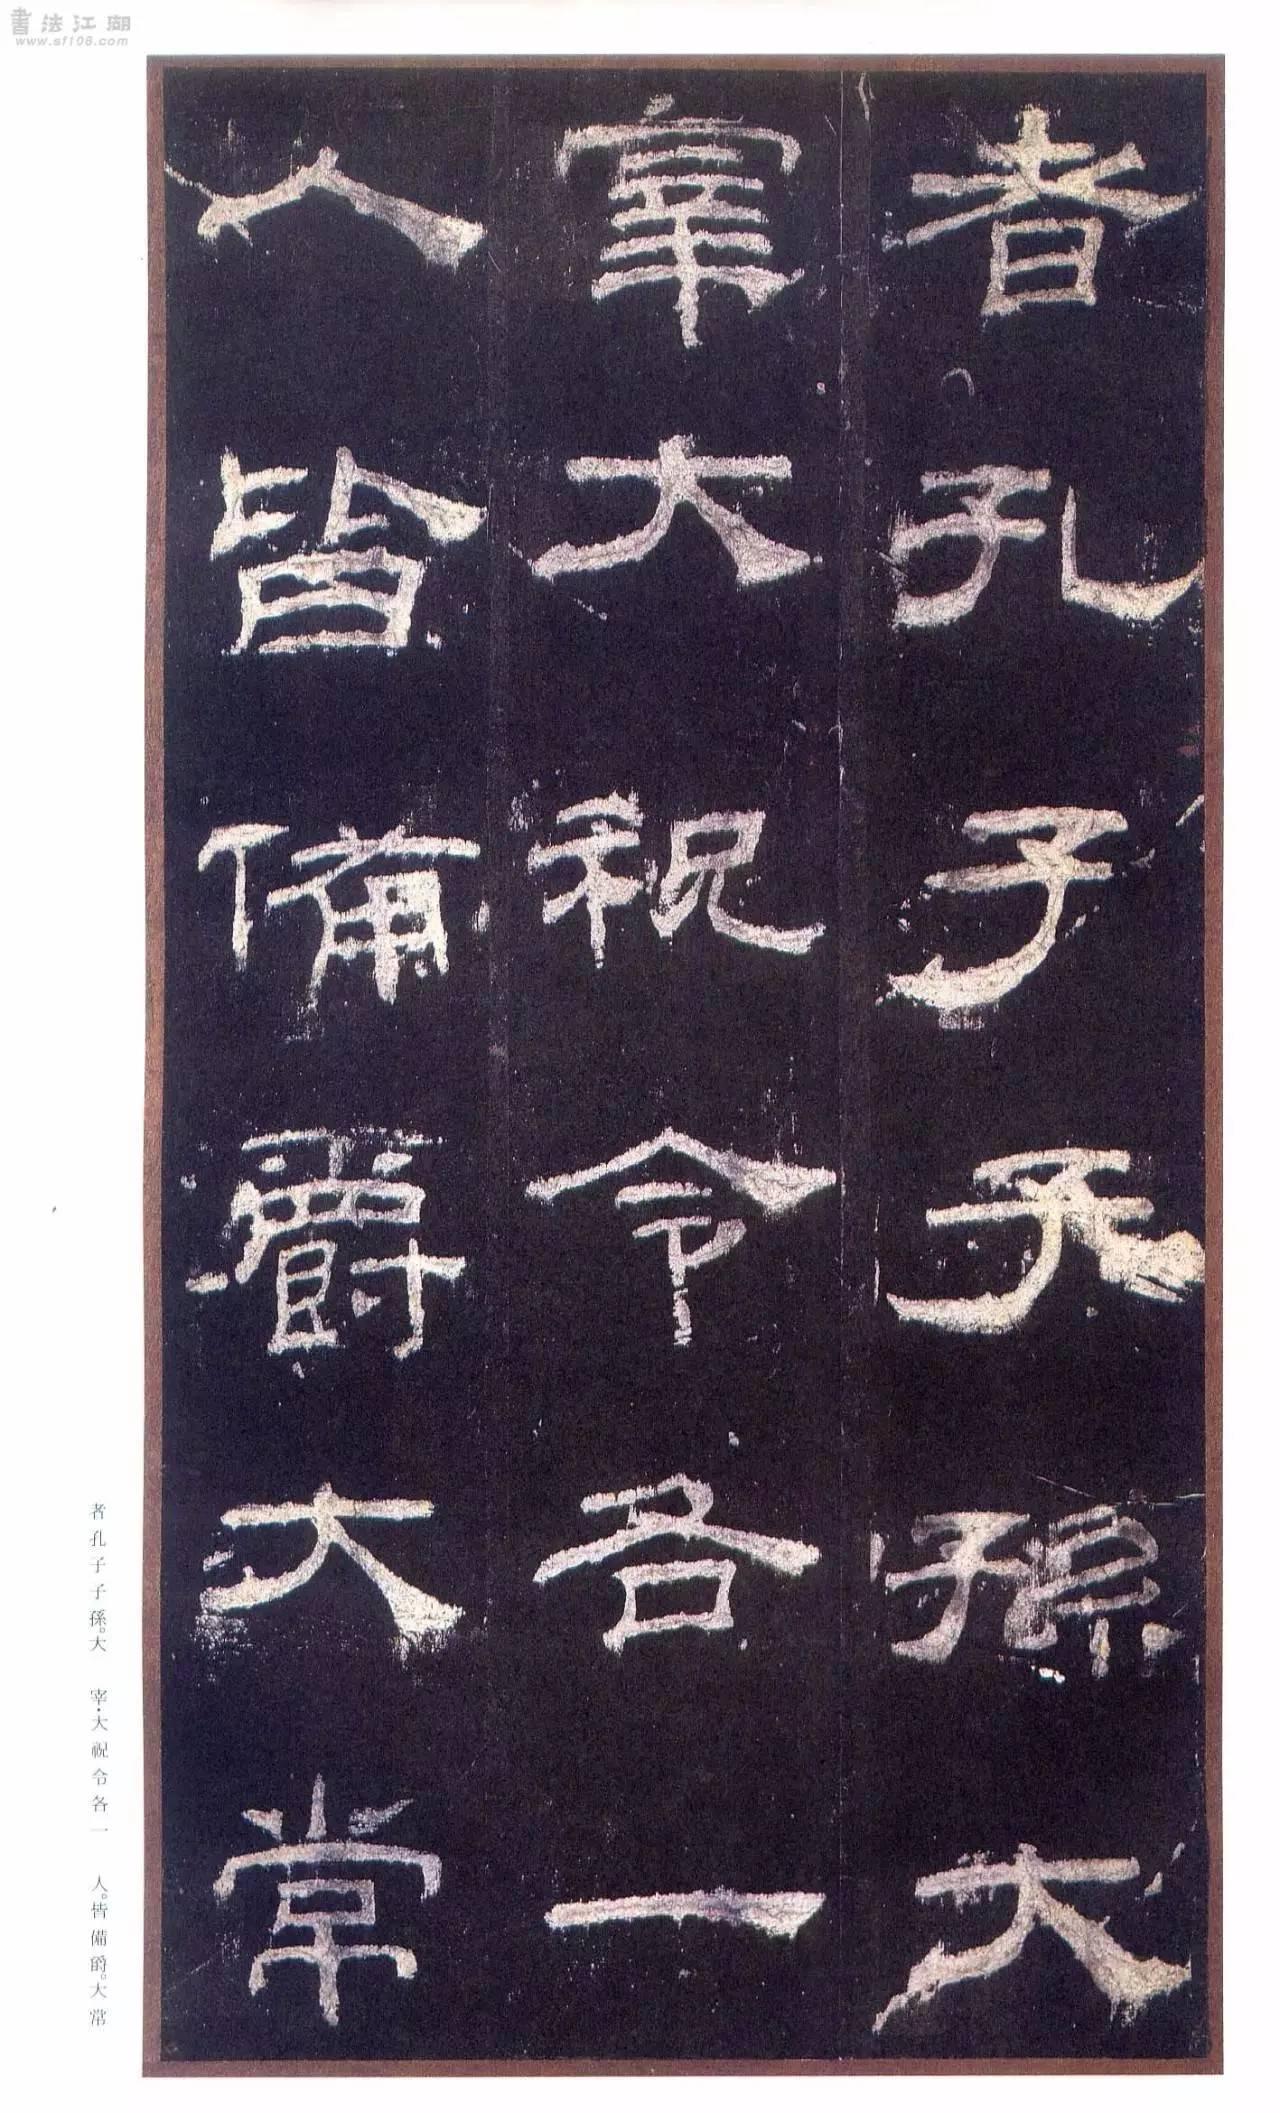 書法江湖
www.sf108.com
者孔子子孫大
宰大祝令各一
人皆備爵大常
者孔子子孫。大 宰·大祝令各一 人。皆備爵。大常